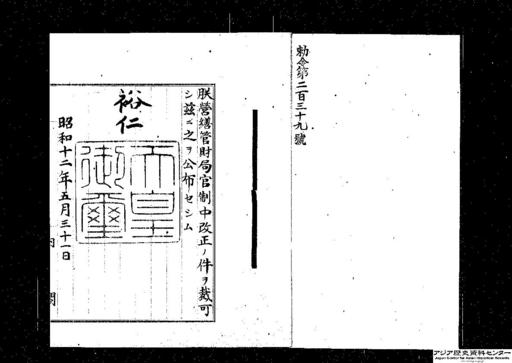 勅令第二百三十九號
朕營繕管財局官制中改正ノ件ヲ裁可
シ茲ニ之ヲ公布セシム
裕仁
天皇
御璽
昭和十二年五月三十一日
内閣
アジア歴史資料センター
Japan Center for Asian Historical Records